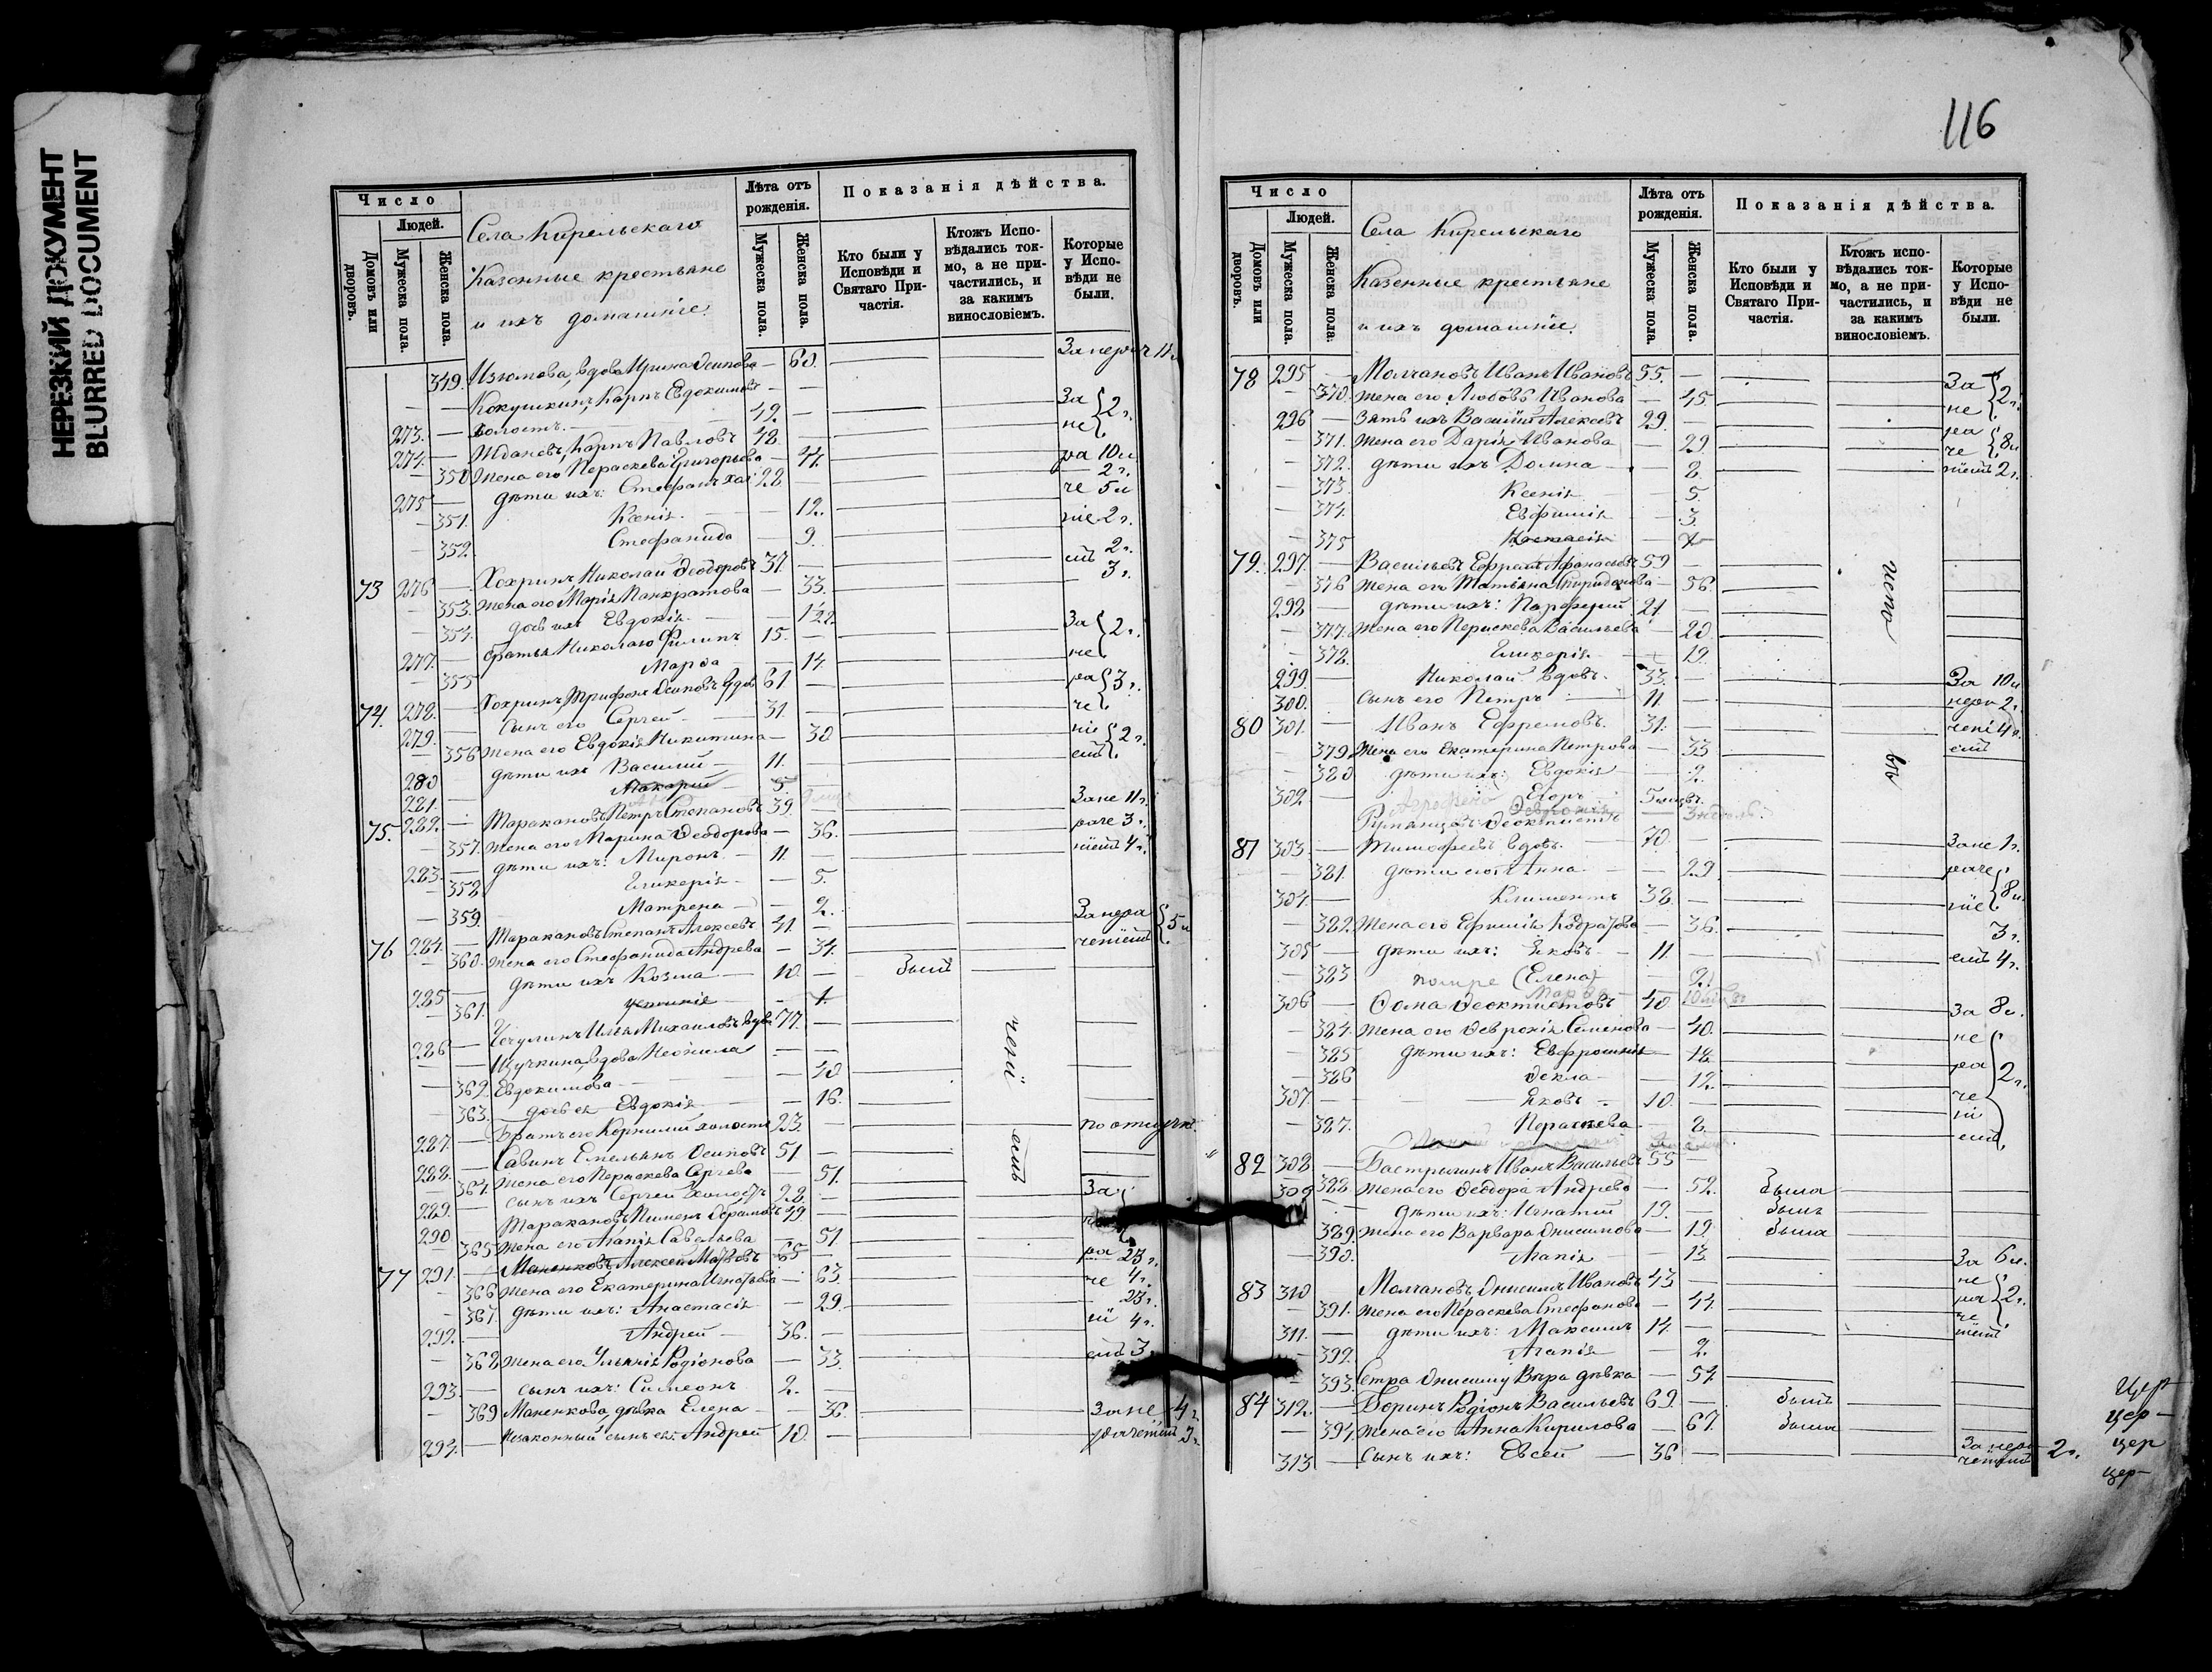 НЕРЕЗКИЙ ДОКУМЕНТ
BLURRED DOCUMENT
Число
Людей.
Домовъ или дворовъ.
Мужеска пола.
Женска пола.
Села Карельскаго
Казенные крестьяне
и ихъ домашніе.
Лѣта отъ рожденія.
Мужеска пола.
Женска пола.
Показанія дѣйства.
Кто были у Исповѣди и Святаго Причастія.
Ктожъ Исповѣдались токмо, а не причастились, и за какимъ винословіемъ.
Которые у Исповѣди не были.
349. Изюмова, вдова Ирина Осипова — 60.
Кокушкинъ, Карпъ Евдокимовъ
273. — холостъ. 49. — За 2 г.
274. — Ждановъ, Карпъ Павловъ 48. — не
350 Жена его Параскева Григорьева — 44. ра 10 л
275 — дѣти ихъ: Стефанъ хол 22 — 2 г.
351. Ксенія — 12. че 5 л
352. Стефанида — 9. ніе 2 г.
73 276 — Хохринъ, Николай Ѳеодоровъ 37. — 2 г.
353. Жена его Марія Панкратова — 33. емъ 3 г.
354. дочь ихъ Евдокія
277. — братья Николаю Филипъ 15. — За 2 г.
355 Марѳа — 14. не
74. 278. — Хохринъ, Трифонъ Осиповъ вдов 61 — ра 3 г.
279. — Сынъ его Сергей — 31. че
356 Жена его Евдокія Никитина — 30 ніе 2 г.
280 дѣти ихъ Василий — 11. емъ
281. — Макарий 5.
75. 282. — Таракановъ Петръ Степановъ 39. За не 11 г.
357. Жена его Марина Ѳеодорова — 36. раче 3 г.
283. — дѣти ихъ: Миронъ. 11. — ніемъ 4 г.
358 Гликерія — 5.
359. Матрена — 2.
76 284. — Таракановъ Степанъ Алексѣевъ 41. — За нера 5 л
360. Жена его Стефанида Андреева — 34. ченіемъ
285 — дѣти ихъ Козма — 10. — Былъ
361.
286 — Чечулинъ Илья Михаиловъ вдов 77. —
Щучкина, вдова Неонила
362. Евдокимова — 40
363. дочь ея Евдокія — 16.
287. — Братъ его Корнилий холостъ 23. —
288. — Савинъ Емельянъ Осиповъ 51
364. Жена его Параскева Сергеева — 51.
289. — Сынъ ихъ Сергей холостъ 22. — За
290 Таракановъ, Пименъ Абрамовъ 49
365 Жена его Агапія Савельева — 51.
77 291. — Маненковъ Алексей 65 ра 23 г.
366 Жена его Екатерина Игнатьева — 63. че 4 г.
367 дѣти ихъ: Анастасія — 29. 23 г.
292. — Андрей — 36. — ні 4 г.
368 Жена его Ульянія Родіонова — 33. емъ 3
293 — Сынъ ихъ: Симеонъ 2. —
369 Маненкова, дѣвка Елена — 36. За не 4 г.
294. — Незаконный сынъ ея Андрей 10. —
ченіемъ
116
Число
Людей.
Домовъ или дворовъ.
Мужеска пола.
Женска пола.
Села Карельскаго
Казенные крестьяне
и ихъ домашніе.
Лѣта отъ рожденія.
Мужеска пола.
Женска пола.
Показанія дѣйства.
Кто были у Исповѣди и Святаго Причастія.
Ктожъ исповѣдались токмо, а не причастились, и за какимъ винословіемъ.
Которые у Исповѣди не были.
78 295 — Молчановъ Иванъ Ивановъ 55. — За 2 г.
370. Жена его Любовь Иванова — 45. не
296 Зять ихъ Василий Алексеевъ 29. — ра 8 л
371. Жена его Дарія Иванова — 29. че
372. дѣти ихъ Домна — 8. ніемъ 2 г.
373. Ксенія 5.
374. Евфимія 3.
375
79. 297. — Васильевъ Ефремъ Афанасьевъ 59 —
376 Жена его Татьяна Спиридонова — 56.
298 — дѣти ихъ: Парфирий 21 —
377. Жена его Параскева Васильева — 20.
378. Гликерія — 19.
299. — Николай вдовъ. 33. — За 10 л
300. — Сынъ его Петръ 11. — нера 2 г.
80 301. — Иванъ Ефремовъ. 31. — чені 4 г.
379. Жена его Екатерина Петрова — 33 емъ
380 дѣти ихъ: Евдокія — 2.
302 — Егоръ 5 мцевъ.
Румянцевъ Ѳеоктистъ
81 303. — Тимофеевъ вдовъ. — 70. За не 1 г.
381. дѣти его: Анна — 29 раче
304. — Климентъ 38. — ніе 8 л
382. Жена его — 36. 3 г.
305 — дѣти ихъ: Яковъ — 11. — емъ 4 г.
383 помре (Елена) 2.
306 — Ѳома Ѳеоктистовъ 40 За 8 л.
384. Жена его Ѳевронія Семенова — 40. не
385 дѣти ихъ: Евфросинія — 18 ра 2 г.
386 Ѳекла — 12. че
307. — Яковъ — 10. — ні
387. Параскева — 8. емъ
82 308 — Бастрыгинъ Иванъ Васильевъ 55 —
388. Жена его Ѳеодора Андреева — 52. Была
309 — дѣти ихъ: Игнатий 19. — Былъ
389. Жена его Варвара Онисимова — 19. Была
390. Агапія — 13. За 6 л.
83 310 Молчановъ, Онисимъ Ивановъ 43 — не 2 г.
391. Жена его Параскева Стефанова — 44. ра
311. — дѣти ихъ: Максимъ 14. — че
392. Агапія — 2. ніемъ
393. Сестра Онисиму Вѣра дѣвка — 57.
84 312. — Боринъ Родіонъ Васильевъ 69. — Былъ
394. Жена его Анна Кирилова — 67. Была
313 — Сынъ ихъ: Евсей — 36 — За нера 2 г.
ченіемъ
цер
цер-
цер
цер-